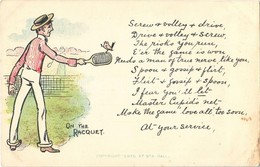 Screw & volley & drive,
Drive & volley & screw,
The risks you run,
E'er the game is won
Needs a man of true nerve like you.
Spoon & gossip & flirt,
Flirt & gossip & spoon
I fear you'll let
Master Cupid's net
Make the game "love all" too soon.
At your Service,
ON THE
RACQUET.